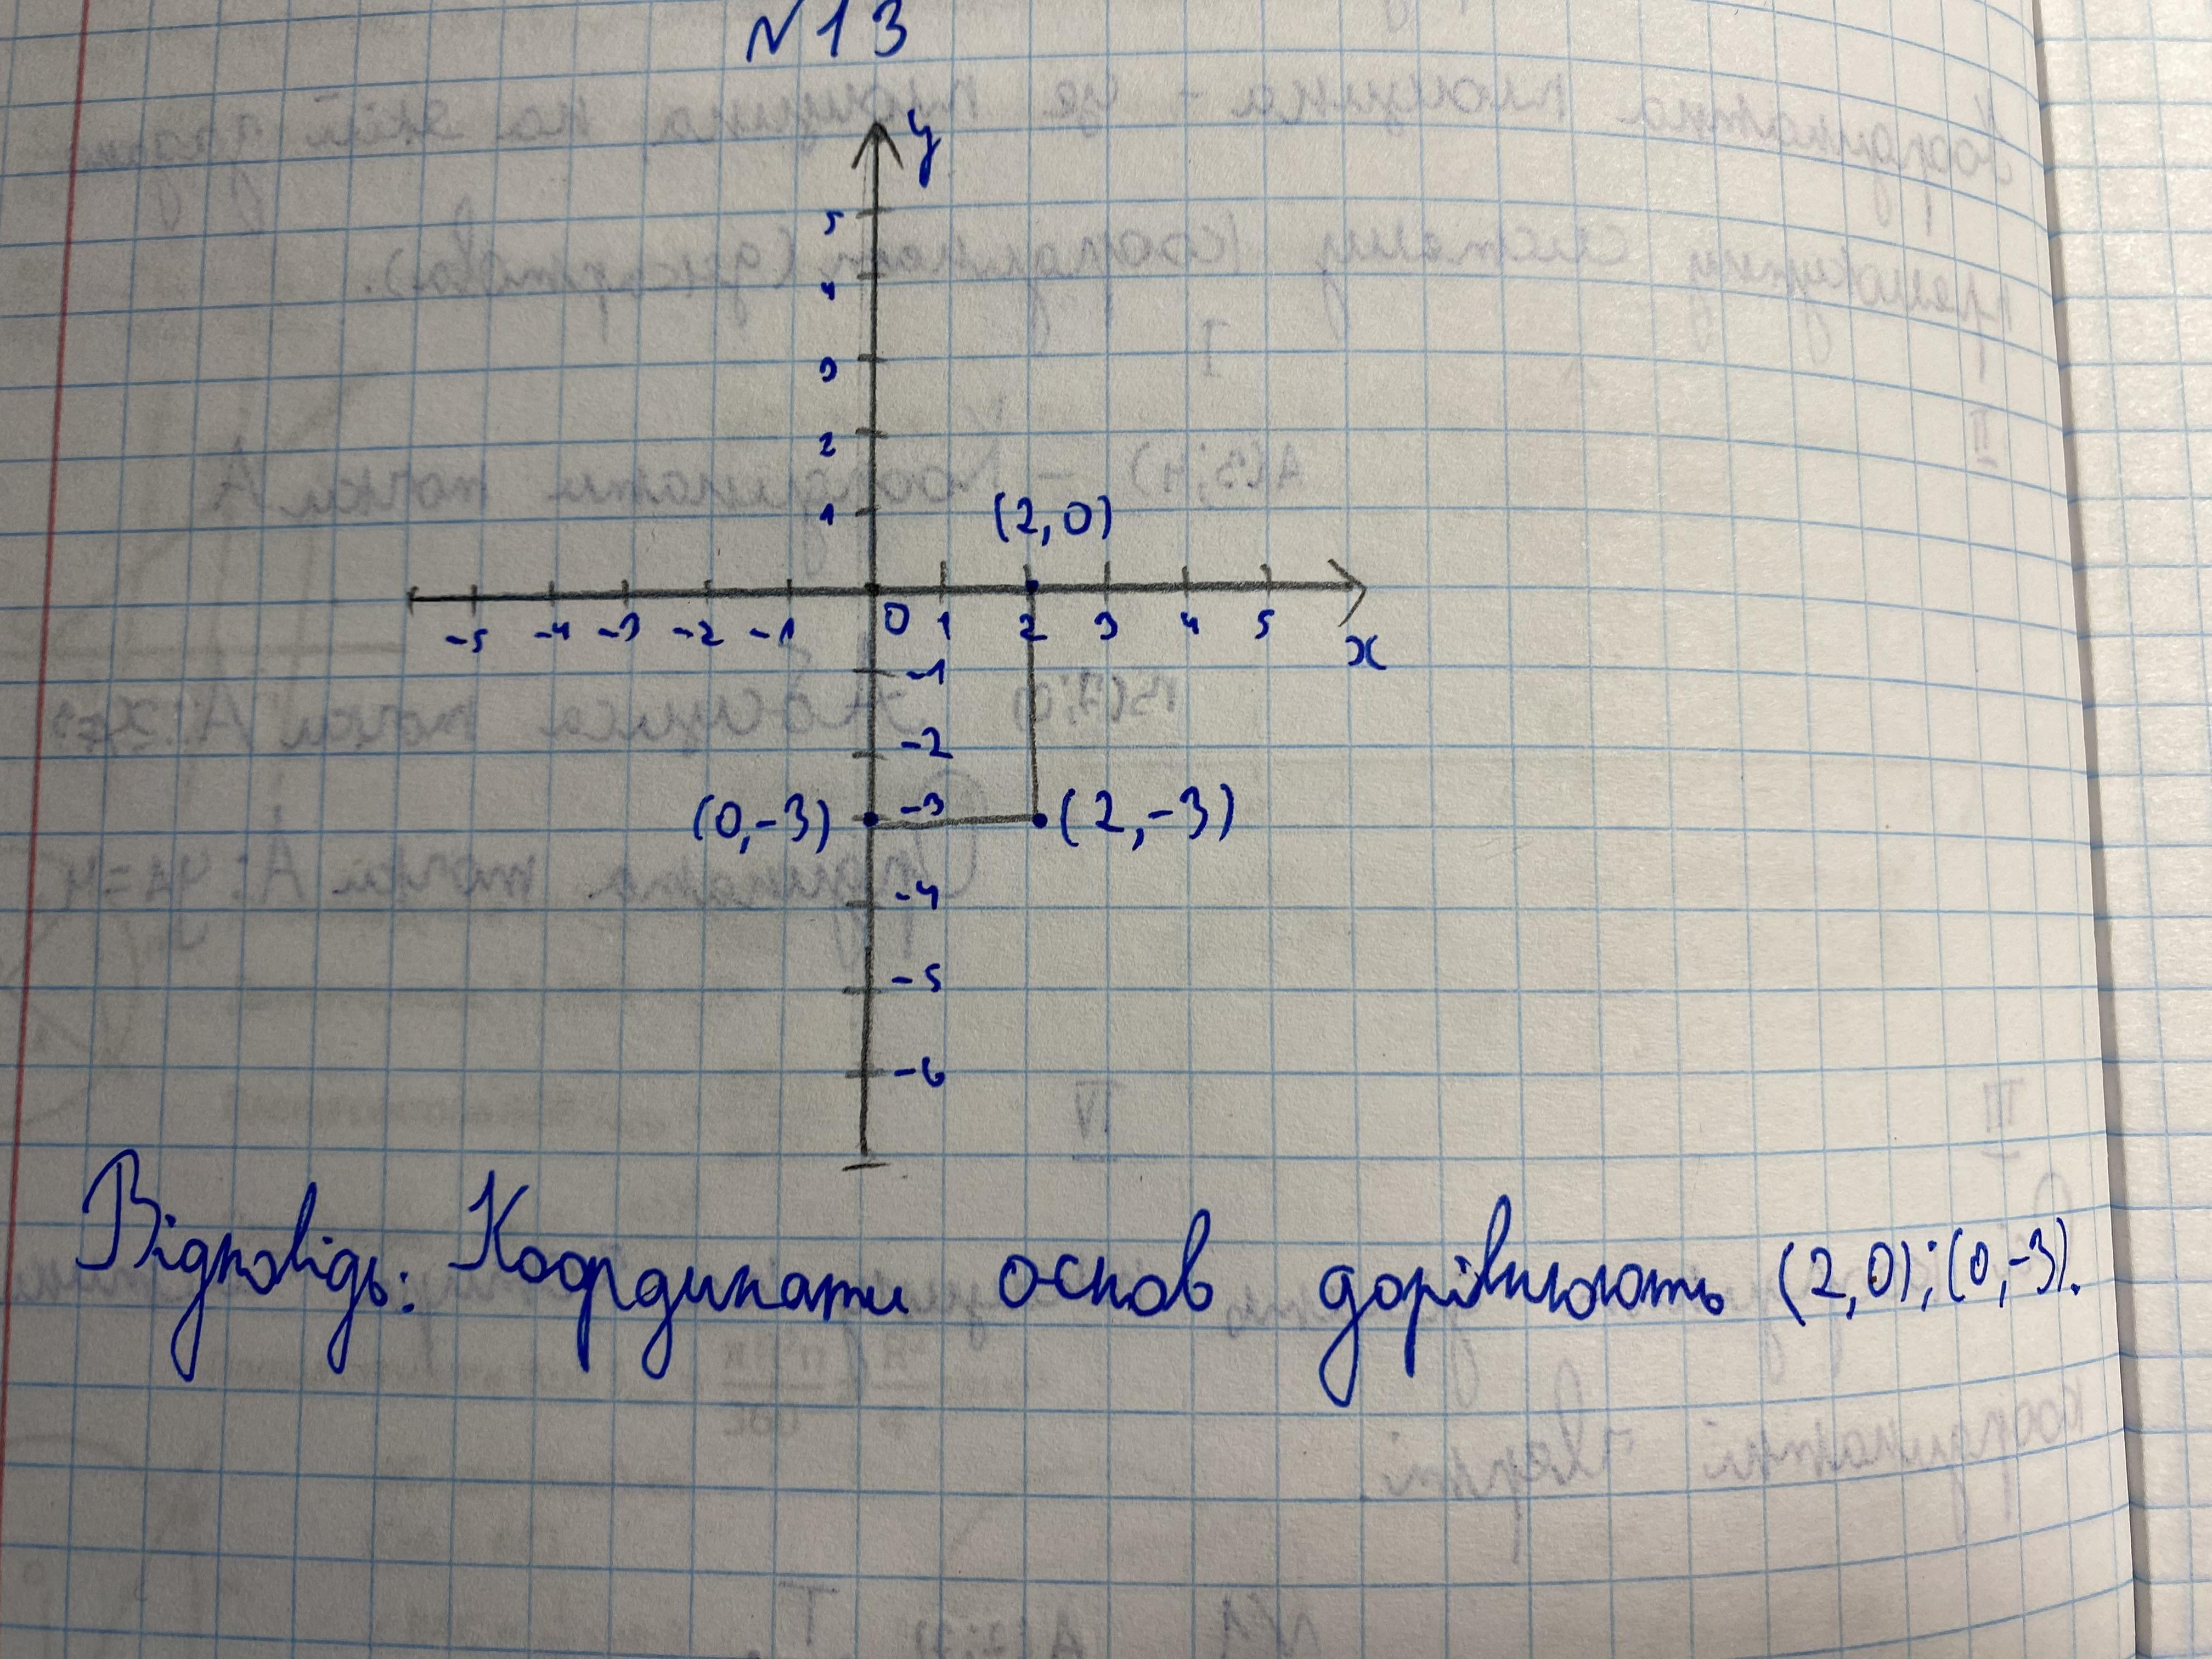 №13
y
5
4
3
2
1
(2,0)
-5 -4 -3 -2 -1 0 1 2 3 4 5
x
-1
-2
(0,-3) -3 (2,-3)
-4
-5
-6
Відповідь: Координати основ дорівнюють (2,0); (0,-3).